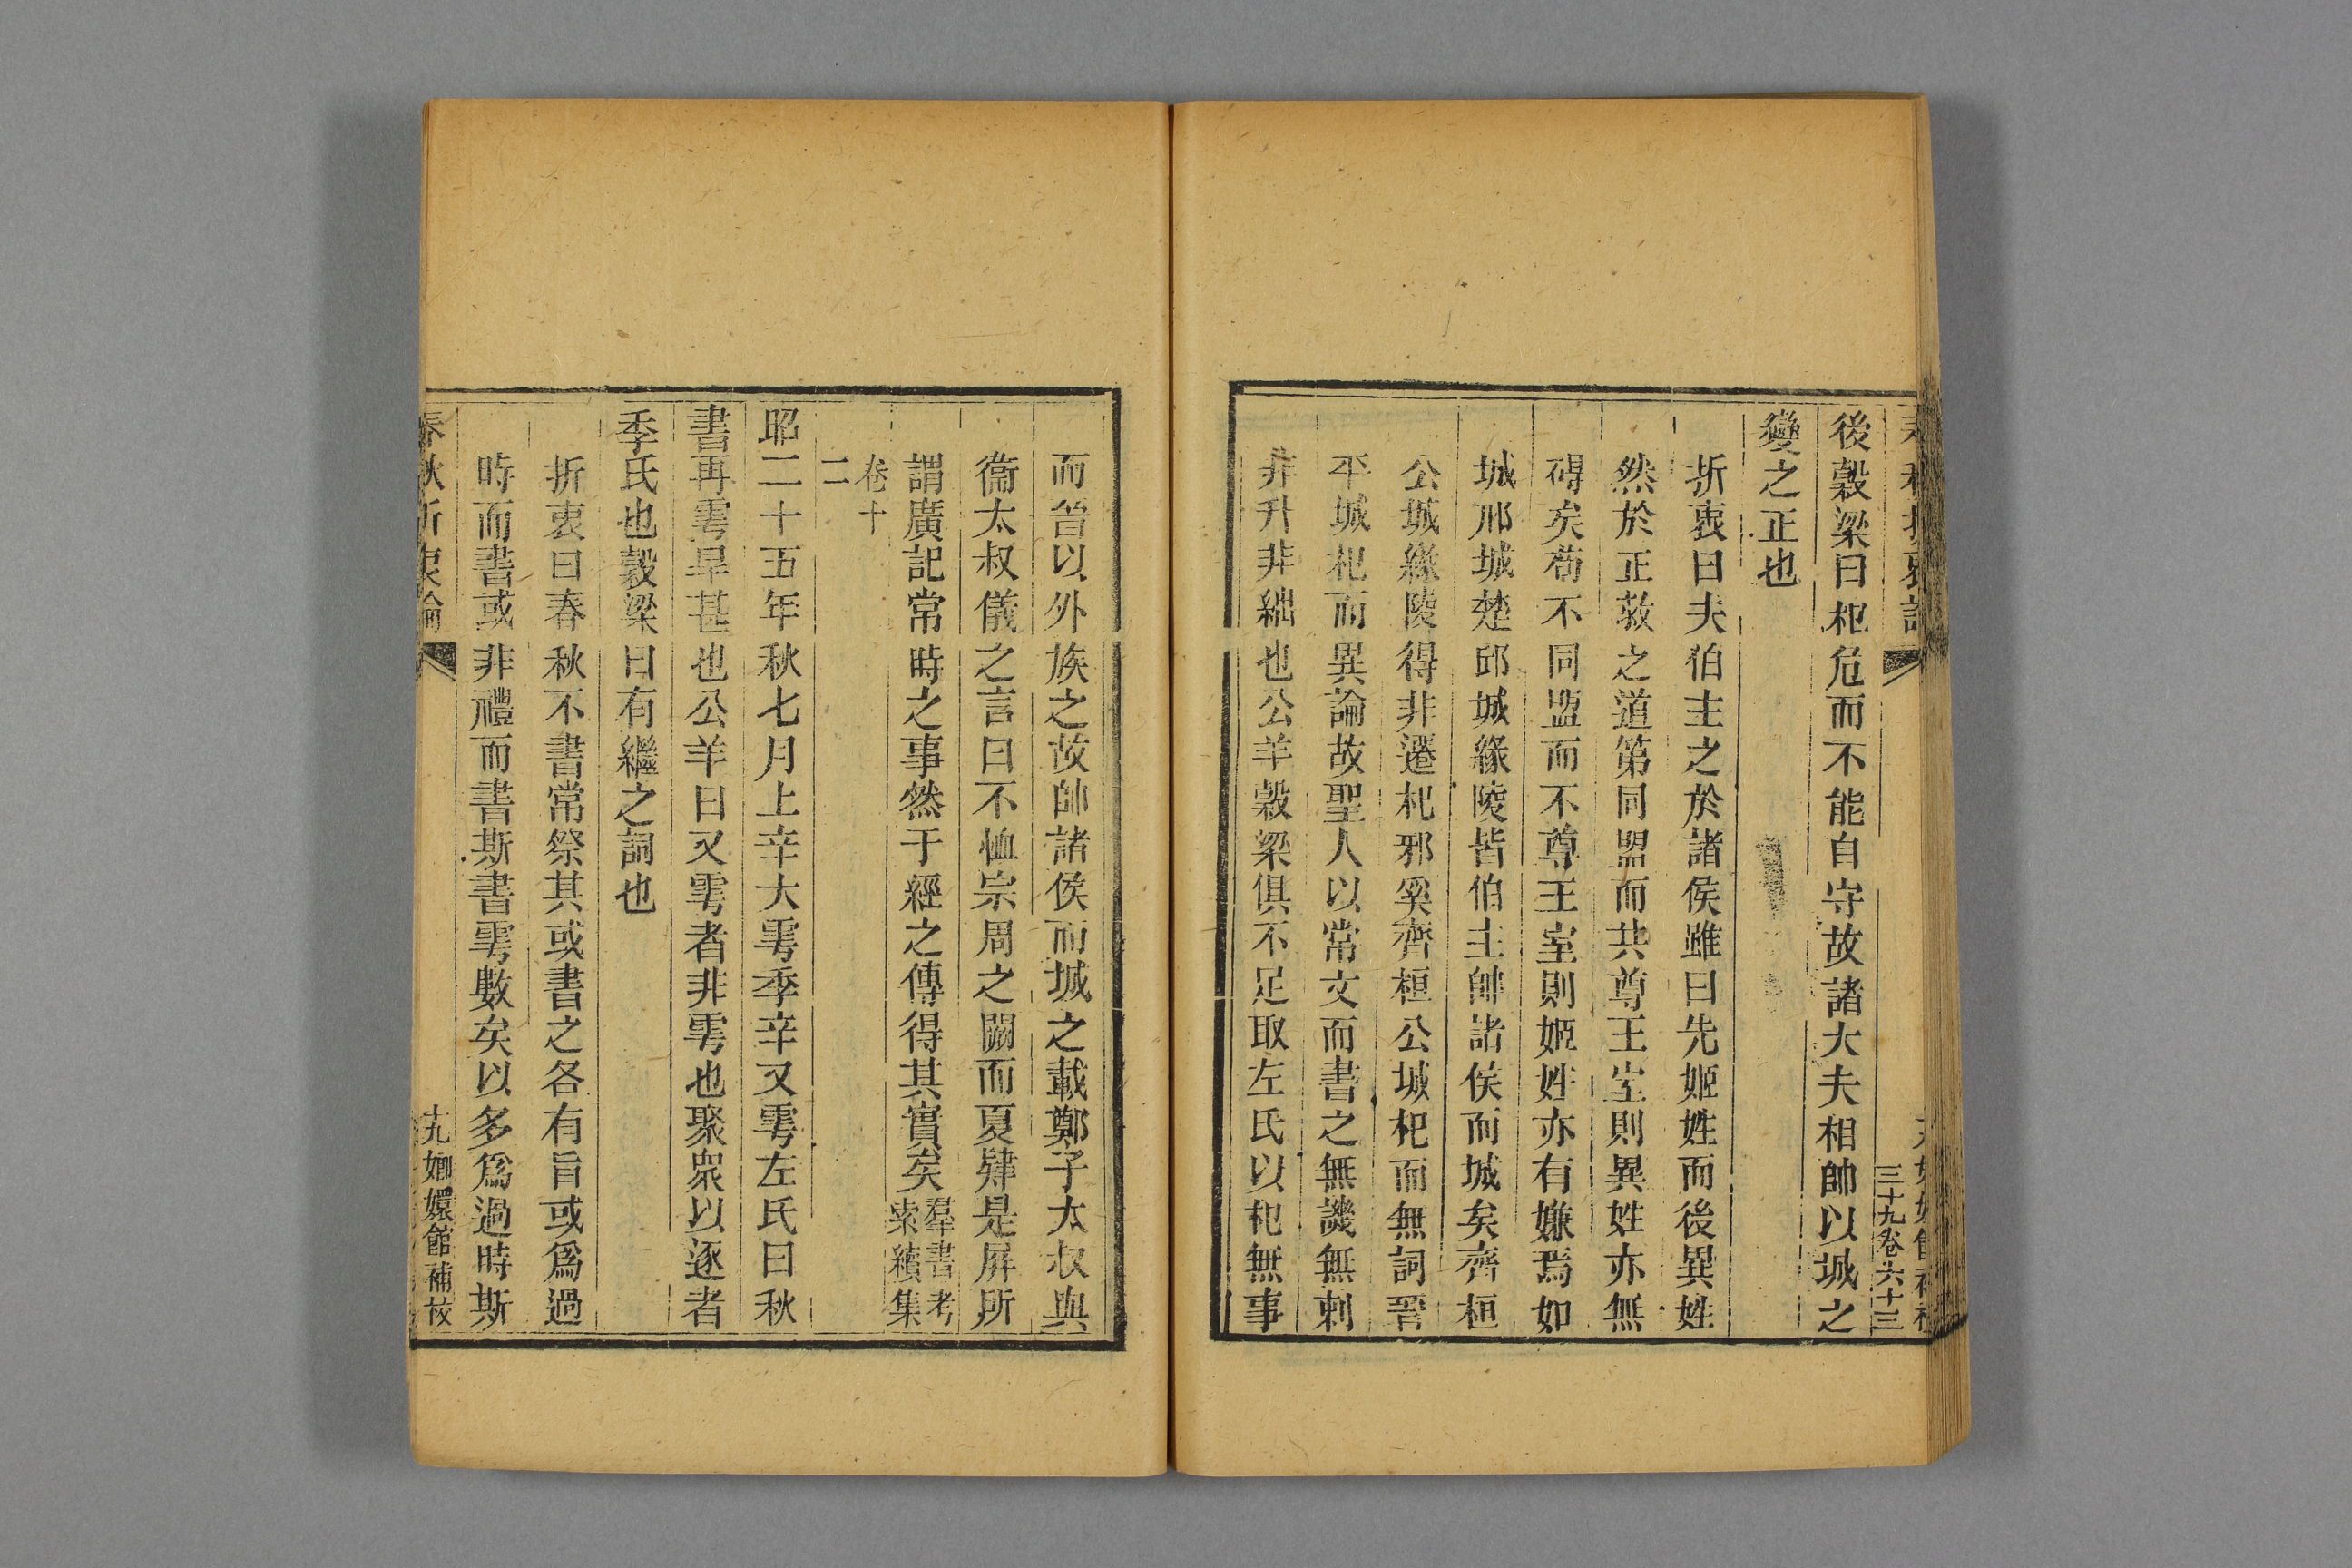 三十九卷六十三
後穀梁曰杞危而不能自守故諸大夫相帥以城之
變之正也
折衷曰夫伯主之於諸侯雖曰先姬姓而後異姓
然於正敎之道第同盟而共尊王室則異姓亦無
碍矣苟不同盟而不尊王室則姬姓亦有嫌焉如
城邢城楚邱城緣陵皆伯主帥諸侯而城矣齊桓
公城緣陵得非遷杞邪奚齊桓公城杞而無詞晉
平城杞而異論故聖人以常文而書之無譏無刺
非升非絀也公羊穀梁俱不足取左氏以杞無事
而晉以外族之故帥諸侯而城之載鄭子太叔與
衞太叔儀之言曰不恤宗周之闕而夏肄是屏所
謂廣記常時之事然于經之傳得其實矣羣書考
索續集
卷十
二
昭二十五年秋七月上辛大雩季辛又雩左氏曰秋
書再雩旱甚也公羊曰又雩者非雩也聚衆以逐者
季氏也穀梁曰有繼之詞也
折衷曰春秋不書常祭其或書之各有旨或爲過
時而書或非禮而書斯書雩數矣以多爲過時斯
春秋折衷論
十九嫏嬛館補校